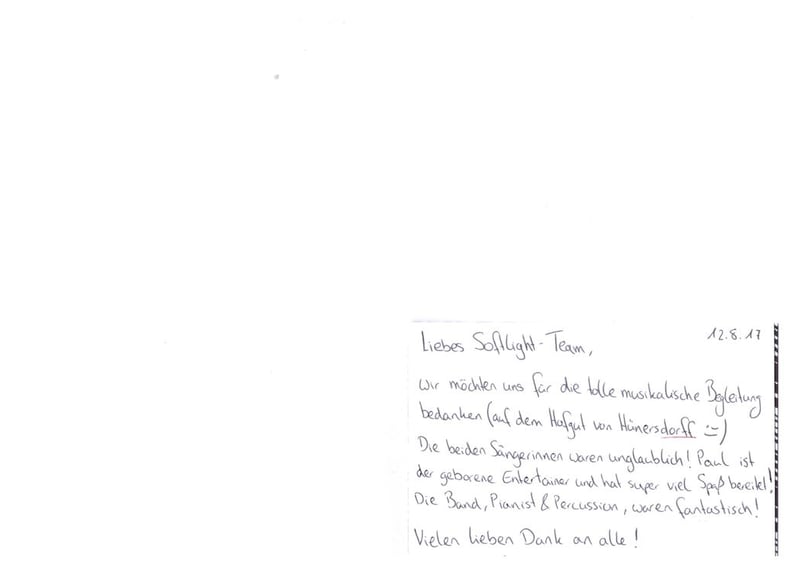 12.8.17
Liebes Softlight-Team,
wir möchten uns für die tolle musikalische Begleitung
bedanken (auf dem Hofgut von Hünersdorff :-)
Die beiden Sängerinnen waren unglaublich! Paul ist
der geborene Entertainer und hat super viel Spaß bereitet!
Die Band, Pianist & Percussion, waren fantastisch!
Vielen lieben Dank an alle!